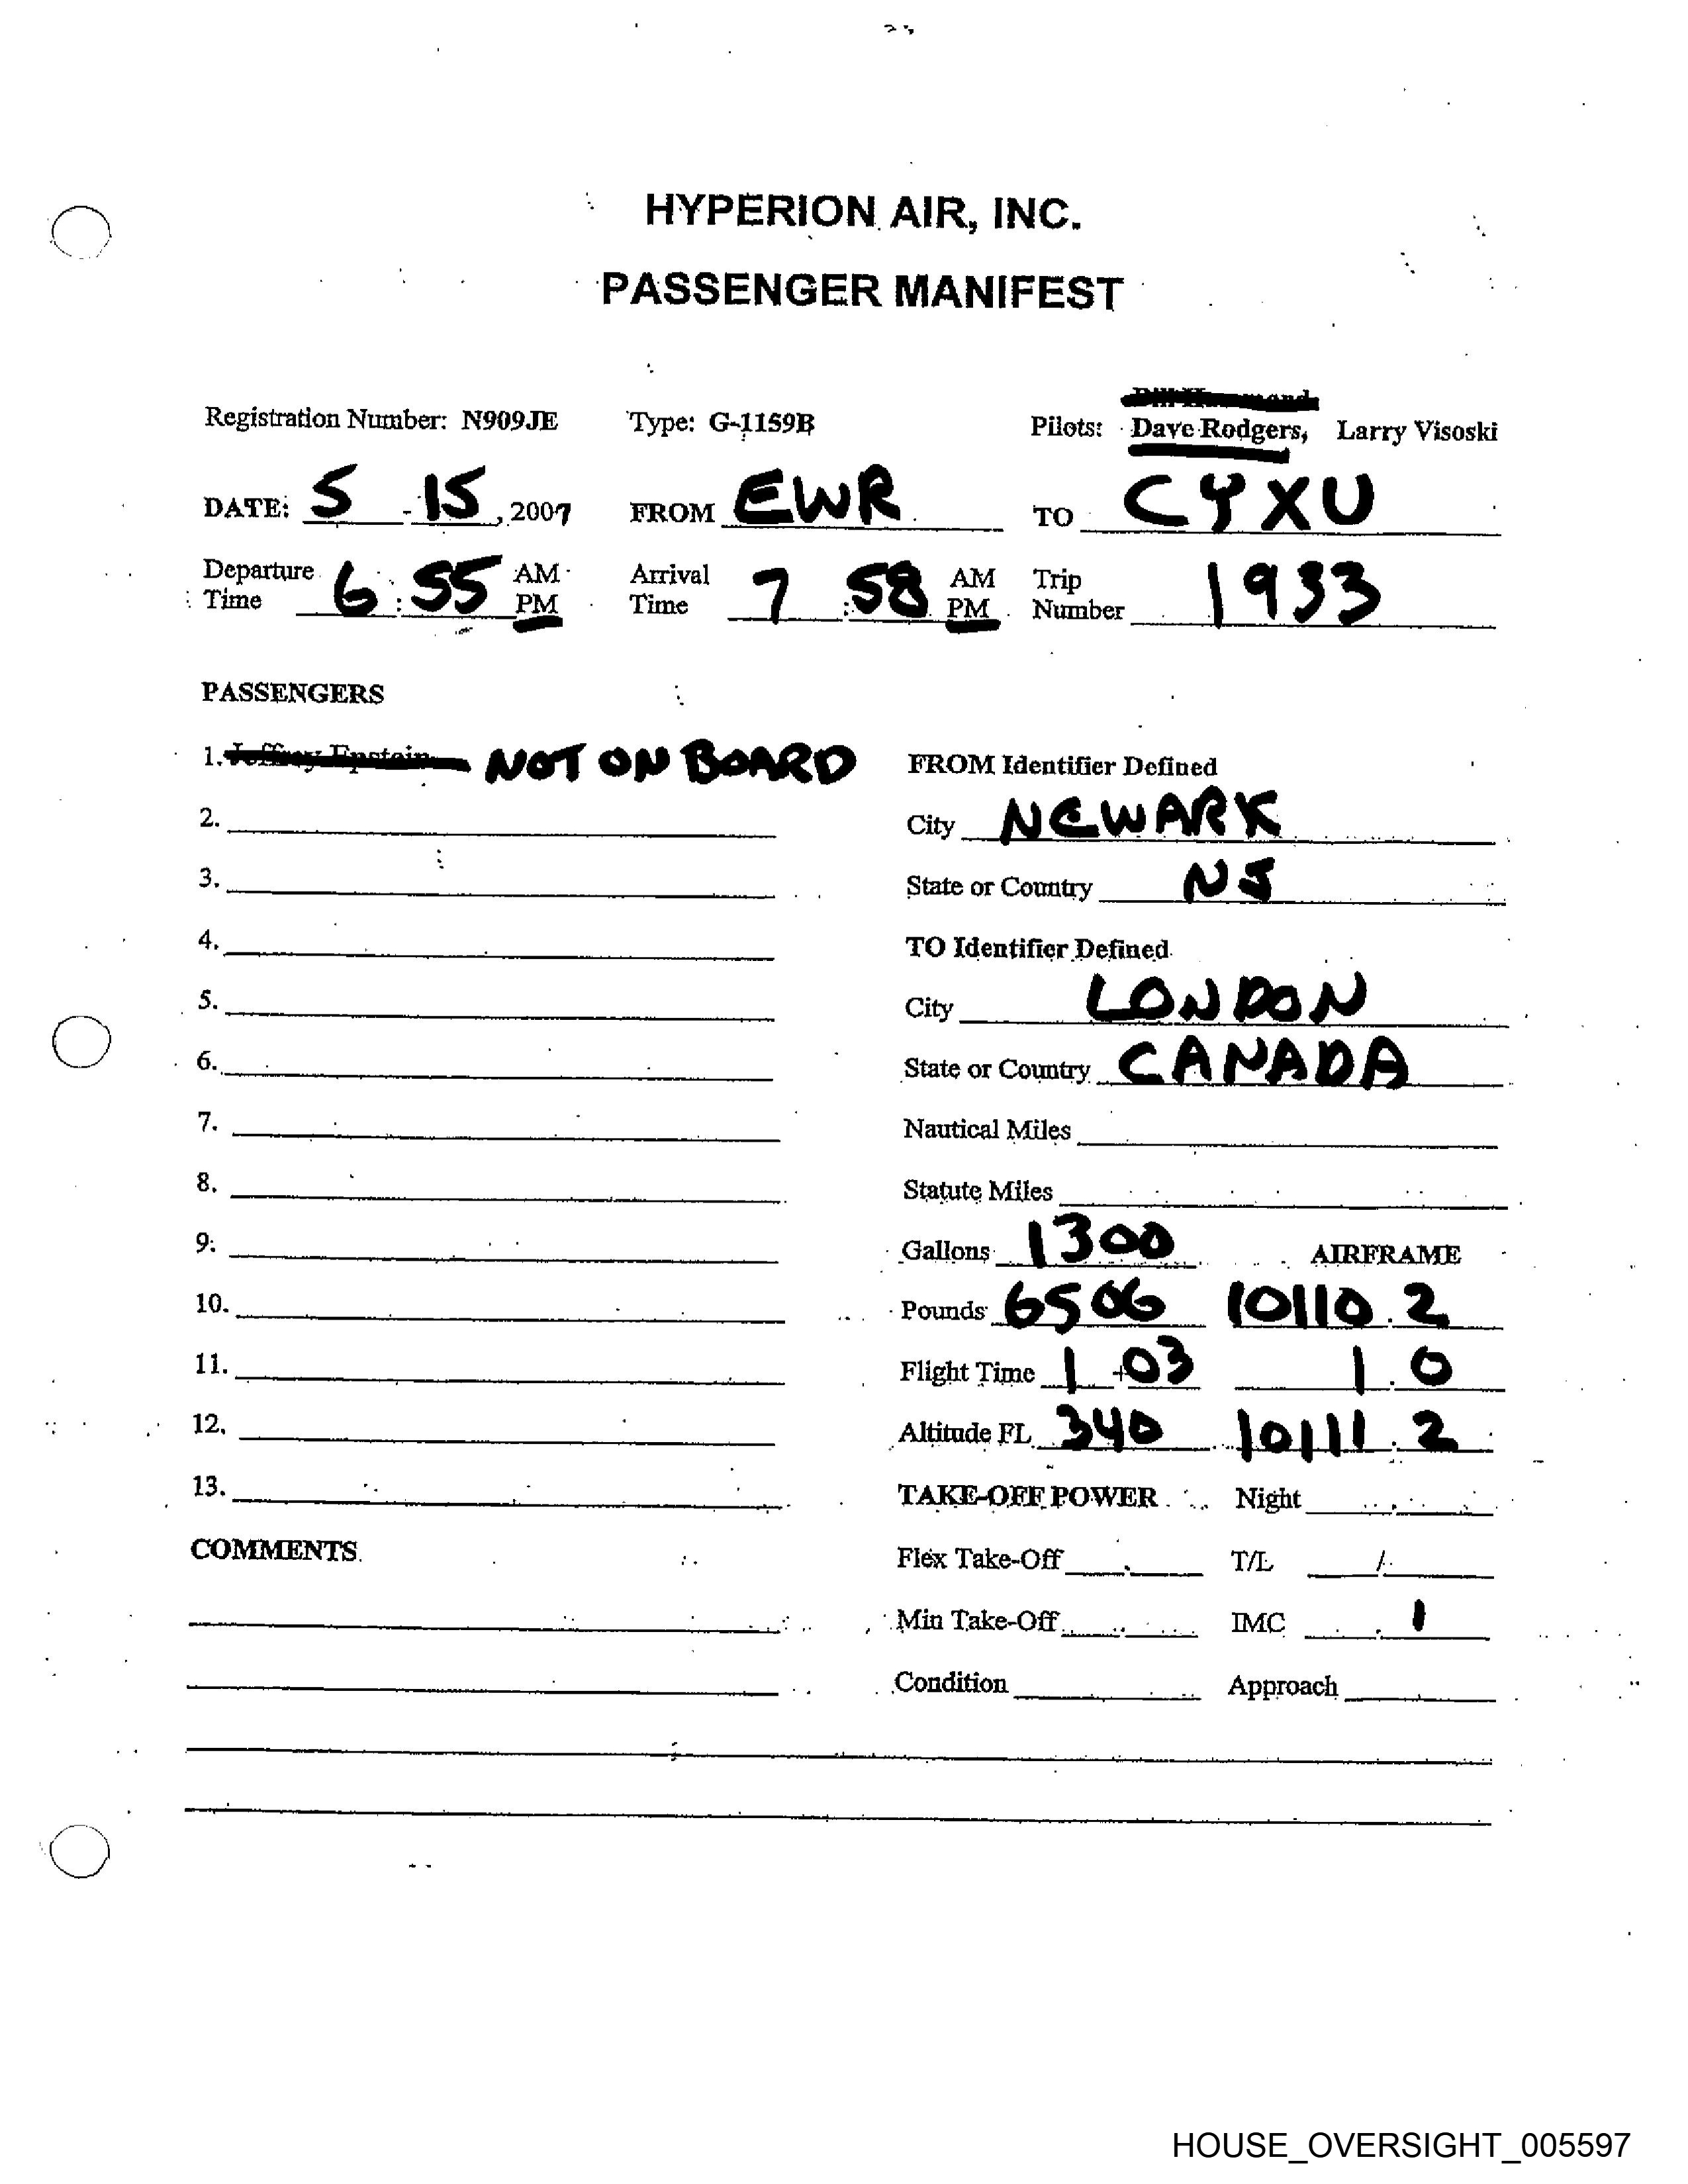 HYPERION AIR, INC.
PASSENGER MANIFEST
Registration Number: N909JE Type: G-1159B Pilots: Dave Rodgers, Larry Visoski
DATE: 5 - 15, 2007 FROM EWR TO CYXU
Departure Time 6:55 AM PM Arrival Time 7:58 AM PM Trip Number 1933
PASSENGERS
1. Jeffrey Epstein NOT ON BOARD
FROM Identifier Defined
2. City NEWARK
3. State or Country NJ
4. TO Identifier Defined
5. City LONDON
6. State or Country CANADA
7. Nautical Miles
8. Statute Miles
9. Gallons 1300 AIRFRAME
10. Pounds 6506 10110.2
11. Flight Time 1+03 1.0
12. Altitude FL 340 10111.2
13. TAKE-OFF POWER Night
COMMENTS Flex Take-Off T/L /
Min Take-Off IMC .1
Condition Approach
HOUSE_OVERSIGHT_005597